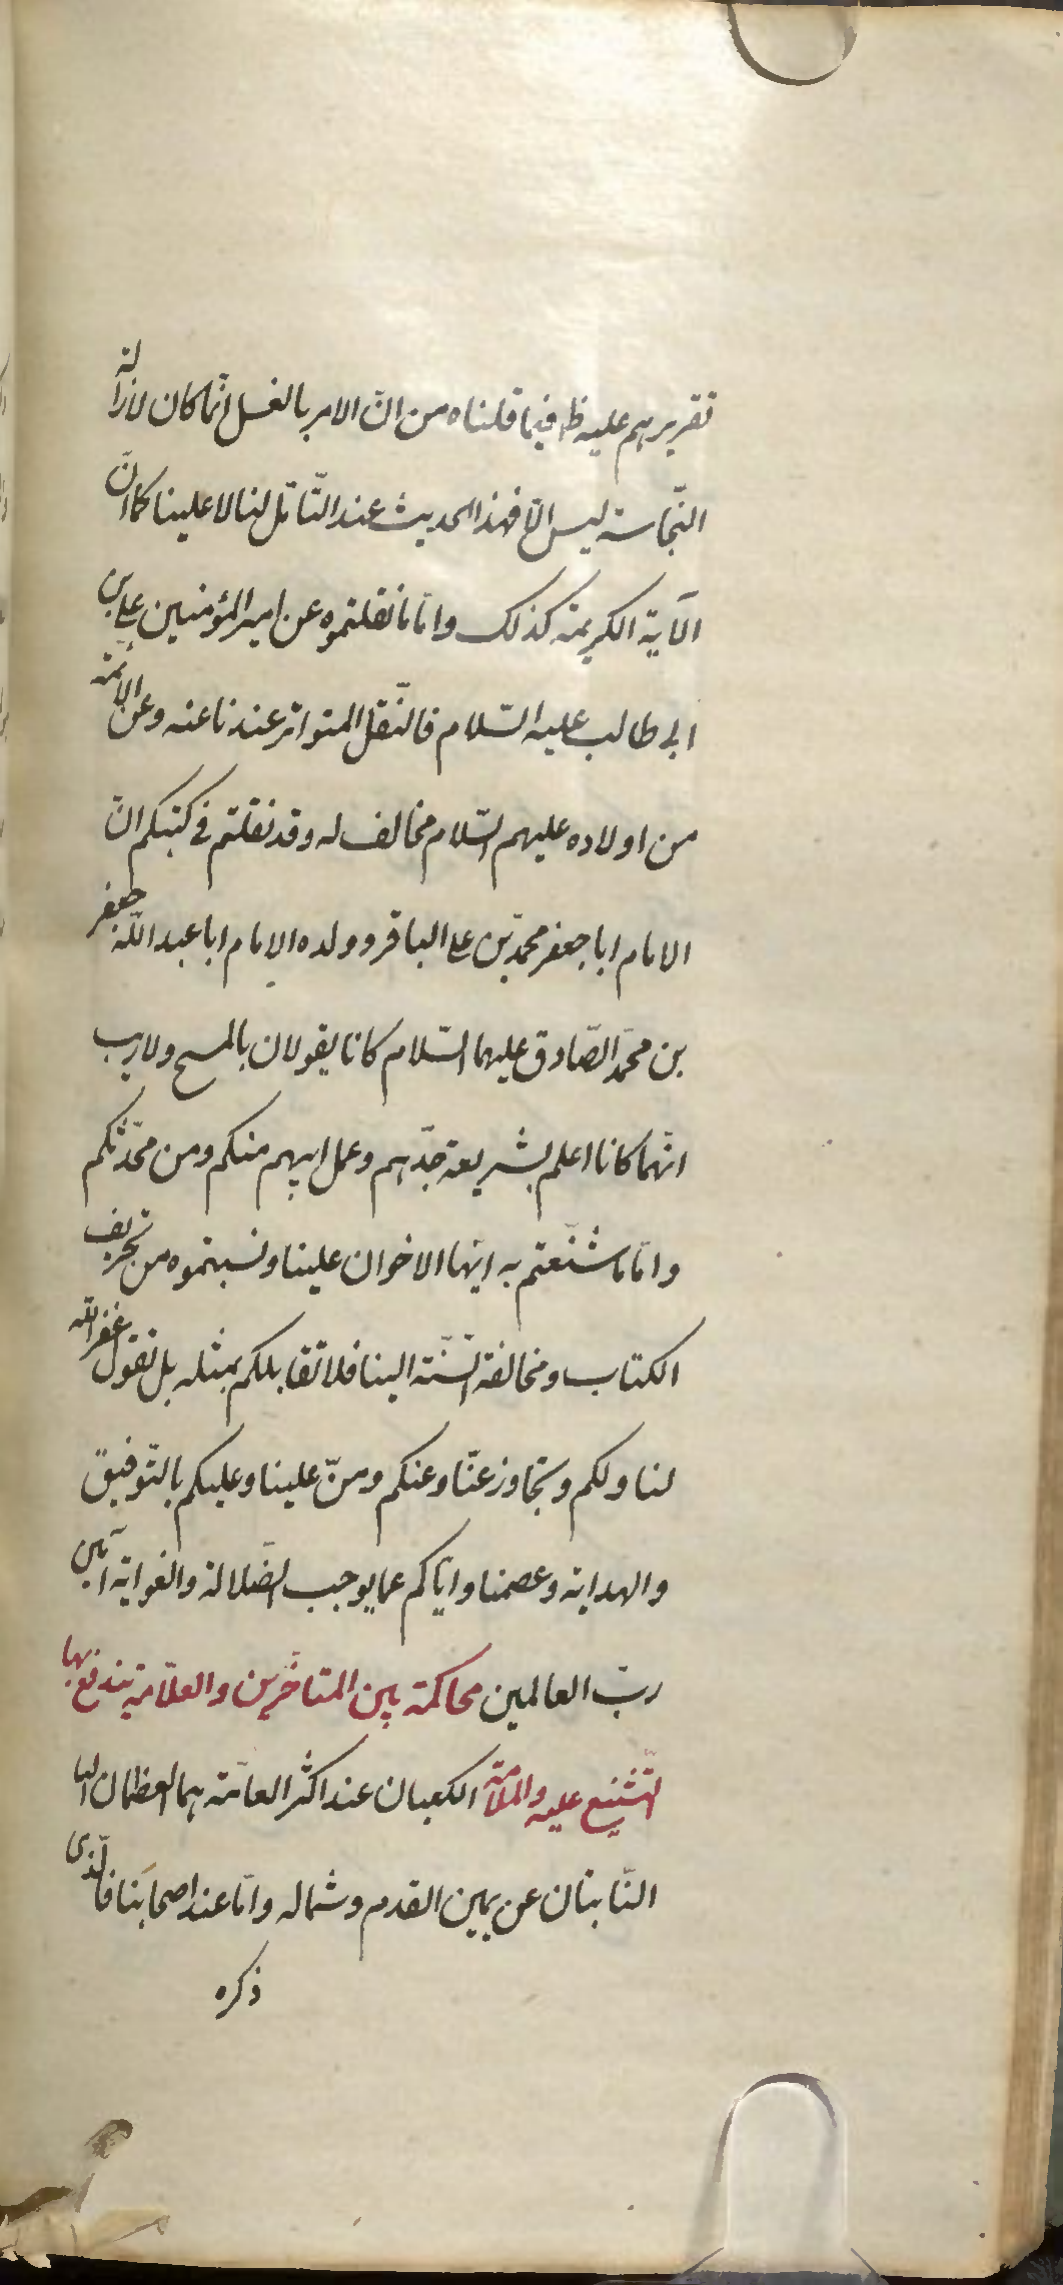 تقريرهم عليه ظ فيما قلناه من انّ الامر بالغسل انّما كان لازالة
النّجاسة ليس الّا فهذا الحديث عند التّأمّل لنا لا علينا كما انّ
الآية الكريمة كذلك وامّا ما نقلتموه عن امير المؤمنين علي بن
ابي طالب عليه السّلام فالنّقل المتواتر عندنا عنه وعن الائمّة
من اولاده عليهم السّلام مخالف له وقد نقلتم في كتبكم انّ
الامام ابا جعفر محمّد بن علي الباقر وولده الامام ابا عبد اللّه جعفر
بن محمّد الصّادق عليهما السّلام كانا يقولان بالمسح ولا ريب
انّهما كانا اعلم بشريعة جدّهم وعمل ابيهم منكم ومن محدّثكم
وامّا ما شنّعتم به ايّها الاخوان علينا ونسبتموه من تحريف
الكتاب ومخالفة السّنّة الينا فلا نقابلكم بمثله بل نقول غفر اللّه
لنا ولكم وتجاوز عنّا وعنكم ومنّ علينا وعليكم بالتّوفيق
والهداية وعصمنا وايّاكم عما يوجب الضّلالة والغواية آمين
ربّ العالمين محاكمة بين المتأخّرين والعلّامة يندفع بها
التّشنيع عليه والملامة الكعبان عند اكثر العامّة هما العظمان
النّابتان عن يمين القدم وشماله وامّا عند اصحابنا فالّذى
ذكره